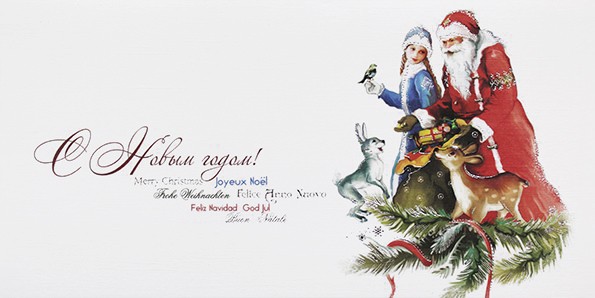 С Новым годом!
Merry Christmas Joyeux Noël
Frohe Weihnachten Felice Anno Nuovo
Feliz Navidad God Jul
Buon Natale